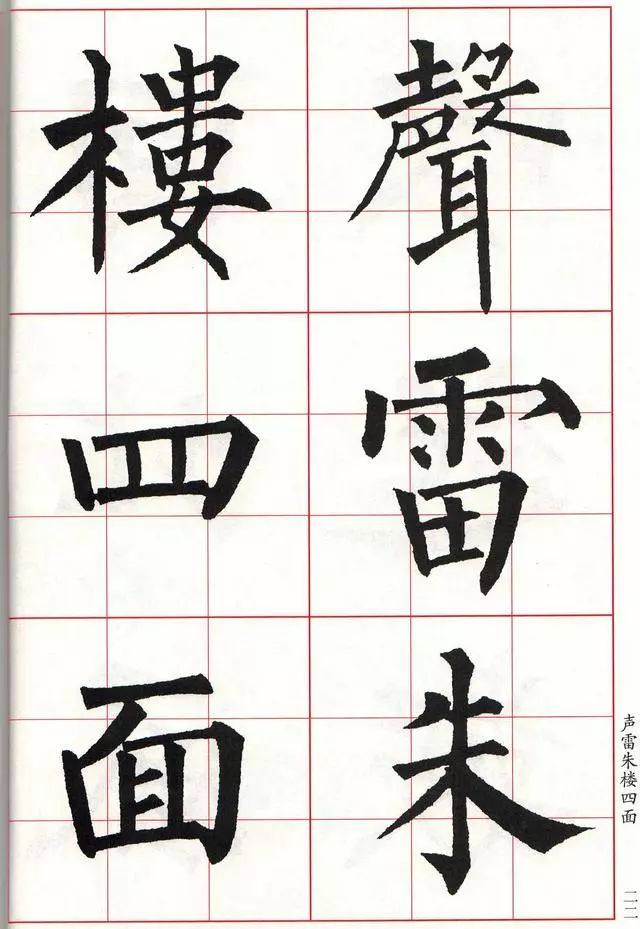 聲雷朱
樓四面
声雷朱楼四面
二二